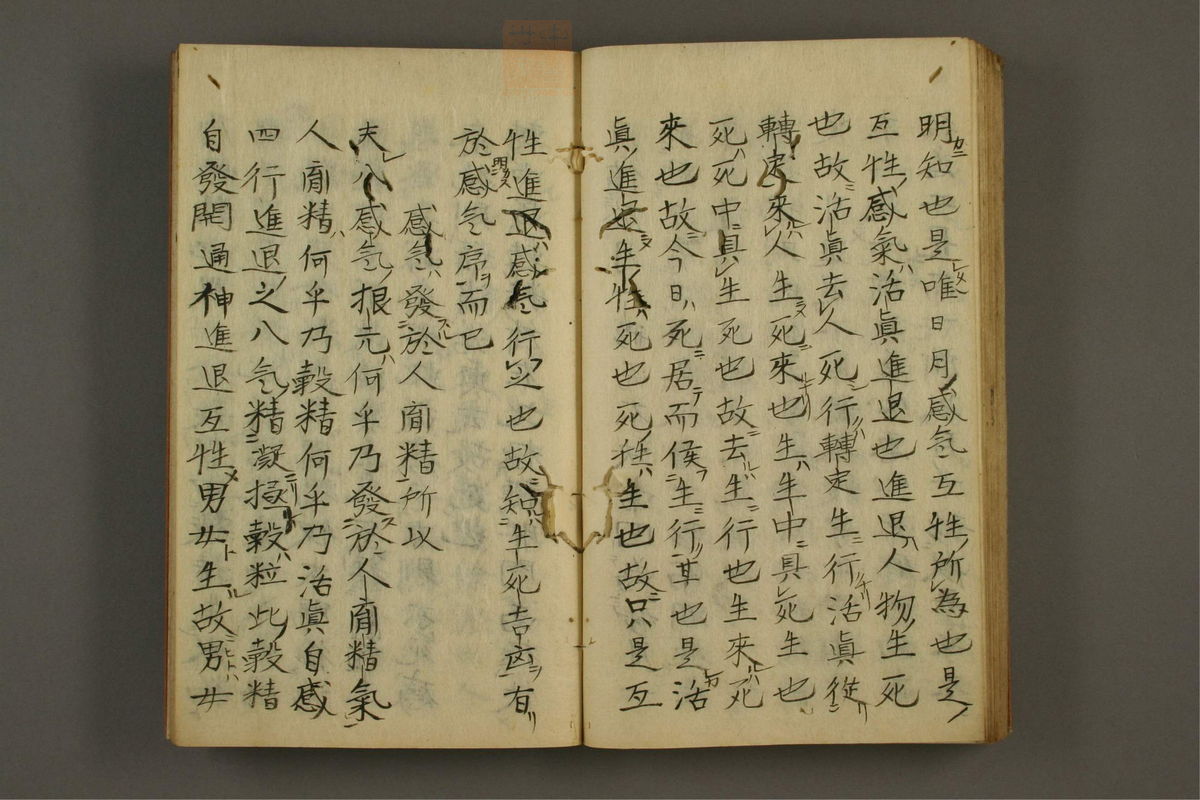 明カニ知也是唯日月感気互性所為也是
互性感氣活眞進退也進退人物生死
也故活眞去人死行轉定生行活眞從
轉定來人生死來也生生中具死生也
死死中具生死也故去生行也生來死
來也故今日死居而俟生行其也是活
眞進退生性死也死性生也故只是互
性進退感気行之也故知生死吉凶有
於感気序而已
感気發於人𦚾精所以
夫八感気根元何乎乃發於人𦚾精氣
人𦚾精何乎乃穀精何乎乃活眞自感
四行進退之八気精凝極穀粒此穀精
自發開通神進退互性男女生故男女